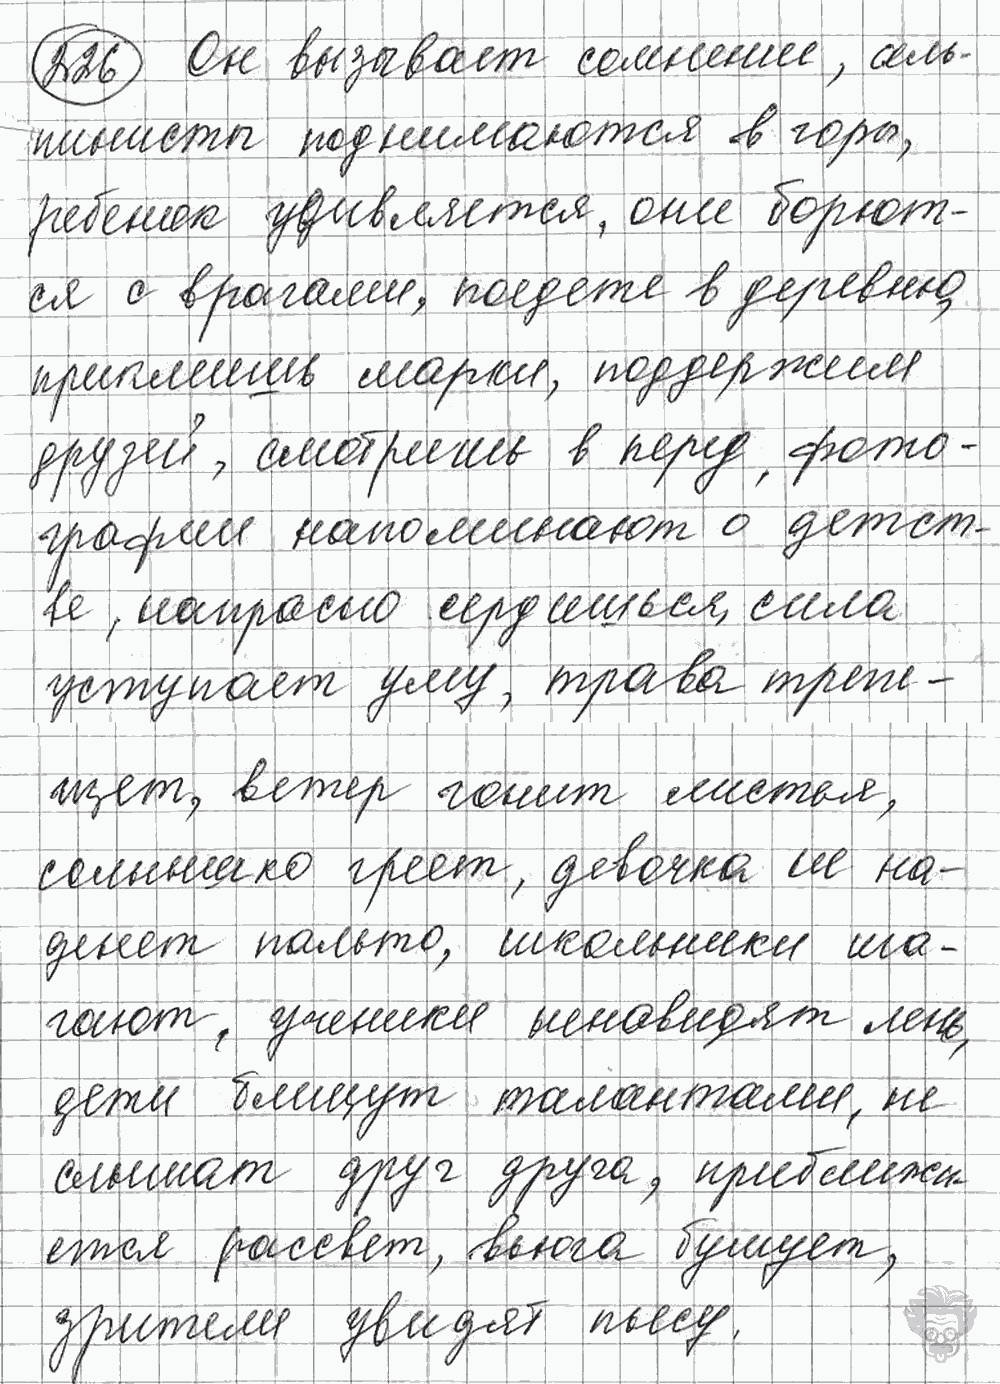 226 Он вызывает сомнение, аль-
пинисты поднимаются в горы,
ребенок удивляется, они борют-
ся с врагами, поедете в деревню,
приклеишь марки, поддержим
друзей, смотришь в перед, фото-
графии напоминают о детст-
ве, напрасно сердишься, сила
уступает уму, трава трепе-
щет, ветер гонит листья,
солнышко греет, девочка не на-
денет пальто, школьники ша-
гают, ученики ненавидят лень,
дети блищут талантами, не
слышат друг друга, приближа-
ется рассвет, вьюга бушует,
зрители увидят пьесу.